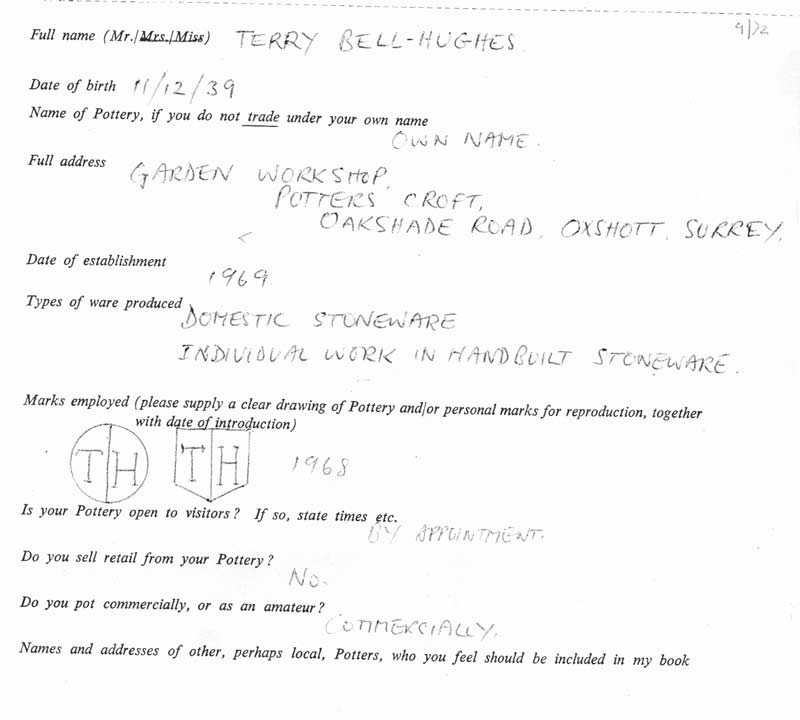 Full name (Mr./Mrs./Miss) TERRY BELL-HUGHES 9/72
Date of birth 11/12/39
Name of Pottery, if you do not trade under your own name
OWN NAME.
Full address GARDEN WORKSHOP,
POTTERS CROFT,
OAKSHADE ROAD, OXSHOTT, SURREY.
Date of establishment
1969
Types of ware produced DOMESTIC STONEWARE
INDIVIDUAL WORK IN HANDBUILT STONEWARE.
Marks employed (please supply a clear drawing of Pottery and/or personal marks for reproduction, together
with date of introduction)
TH TH 1968
Is your Pottery open to visitors? If so, state times etc.
BY APPOINTMENT.
Do you sell retail from your Pottery?
No.
Do you pot commercially, or as an amateur?
COMMERCIALLY.
Names and addresses of other, perhaps local, Potters, who you feel should be included in my book